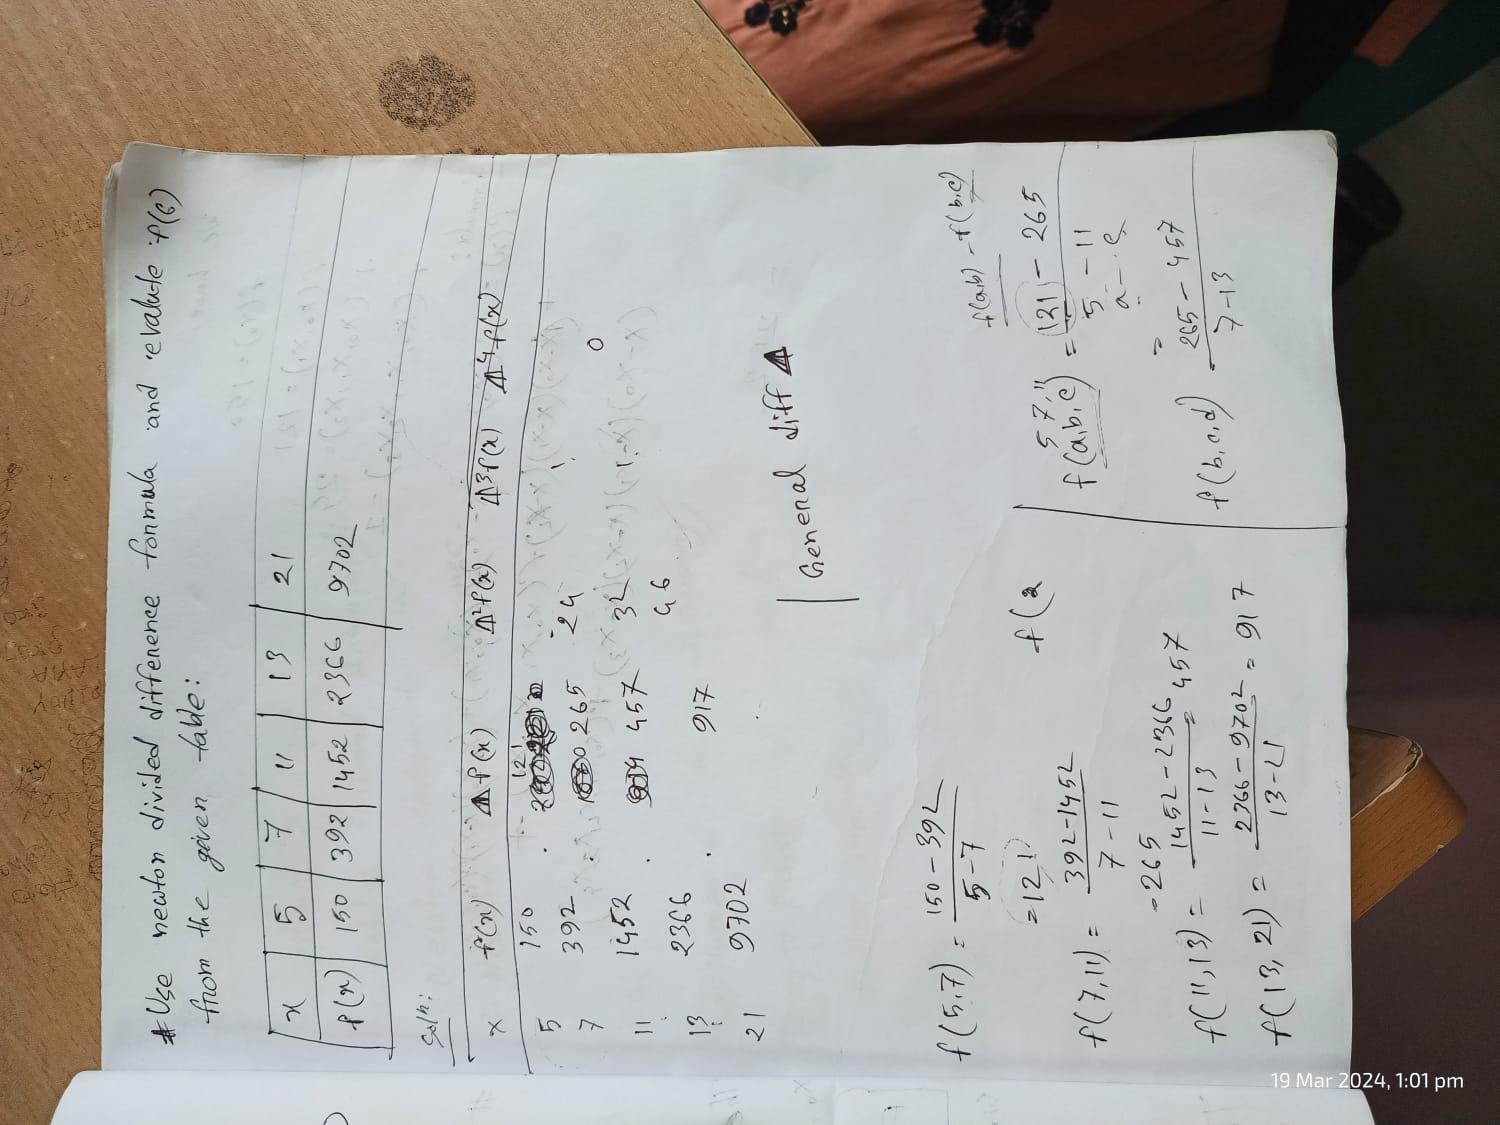 # Use newton divided difference formula and evaluate f(6)
from the given table:
x 5 7 11 13 21
f(x) 150 392 1452 2366 9702
Solⁿ:
x f(x) Δf(x) Δ²f(x) Δ³f(x) Δ⁴f(x)
5 150
121
7 392 265 24 1 0
11 1452 457 32
46
13 2366 917
21 9702
General diff Δ
f(5,7) = (150 - 392)/(5 - 7)
= 121
f(7,11) = (392 - 1452)/(7 - 11)
= 265
f(11,13) = (1452 - 2366)/(11 - 13) = 457
f(13, 21) = (2366 - 9702)/(13 - 21) = 917
f(a
f(a,b) - f(b,c)
5 7, 11
f(a,b,c) = (121 - 265)/(5 - 11)
a - c
=
f(b,c,d) (265 - 457)/(7 - 13)
19 Mar 2024, 1:01 pm